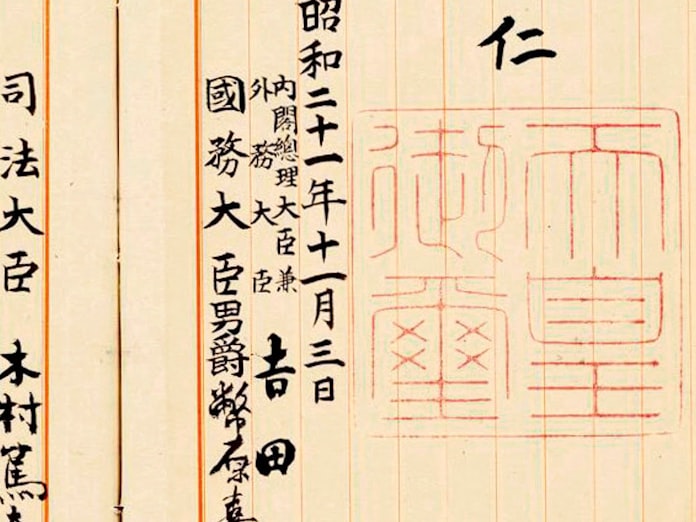 仁
天皇
御璽
昭和二十一年十一月三日
內閣總理大臣兼
外務大臣 吉田
國務大臣男爵幣原喜
司法大臣 木村篤